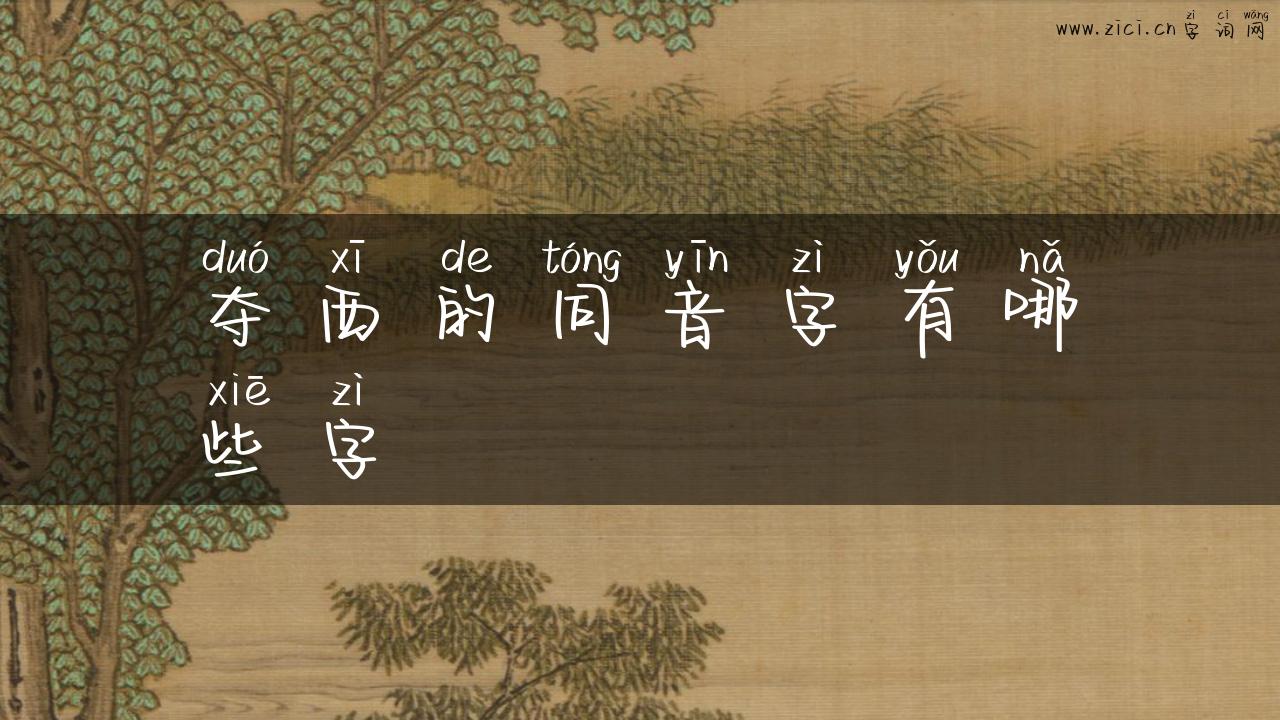 zì cí wǎng
www.zici.cn字词网
duó xī de tóng yīn zì yǒu nǎ
夺西的同音字有哪
xiē zì
些字